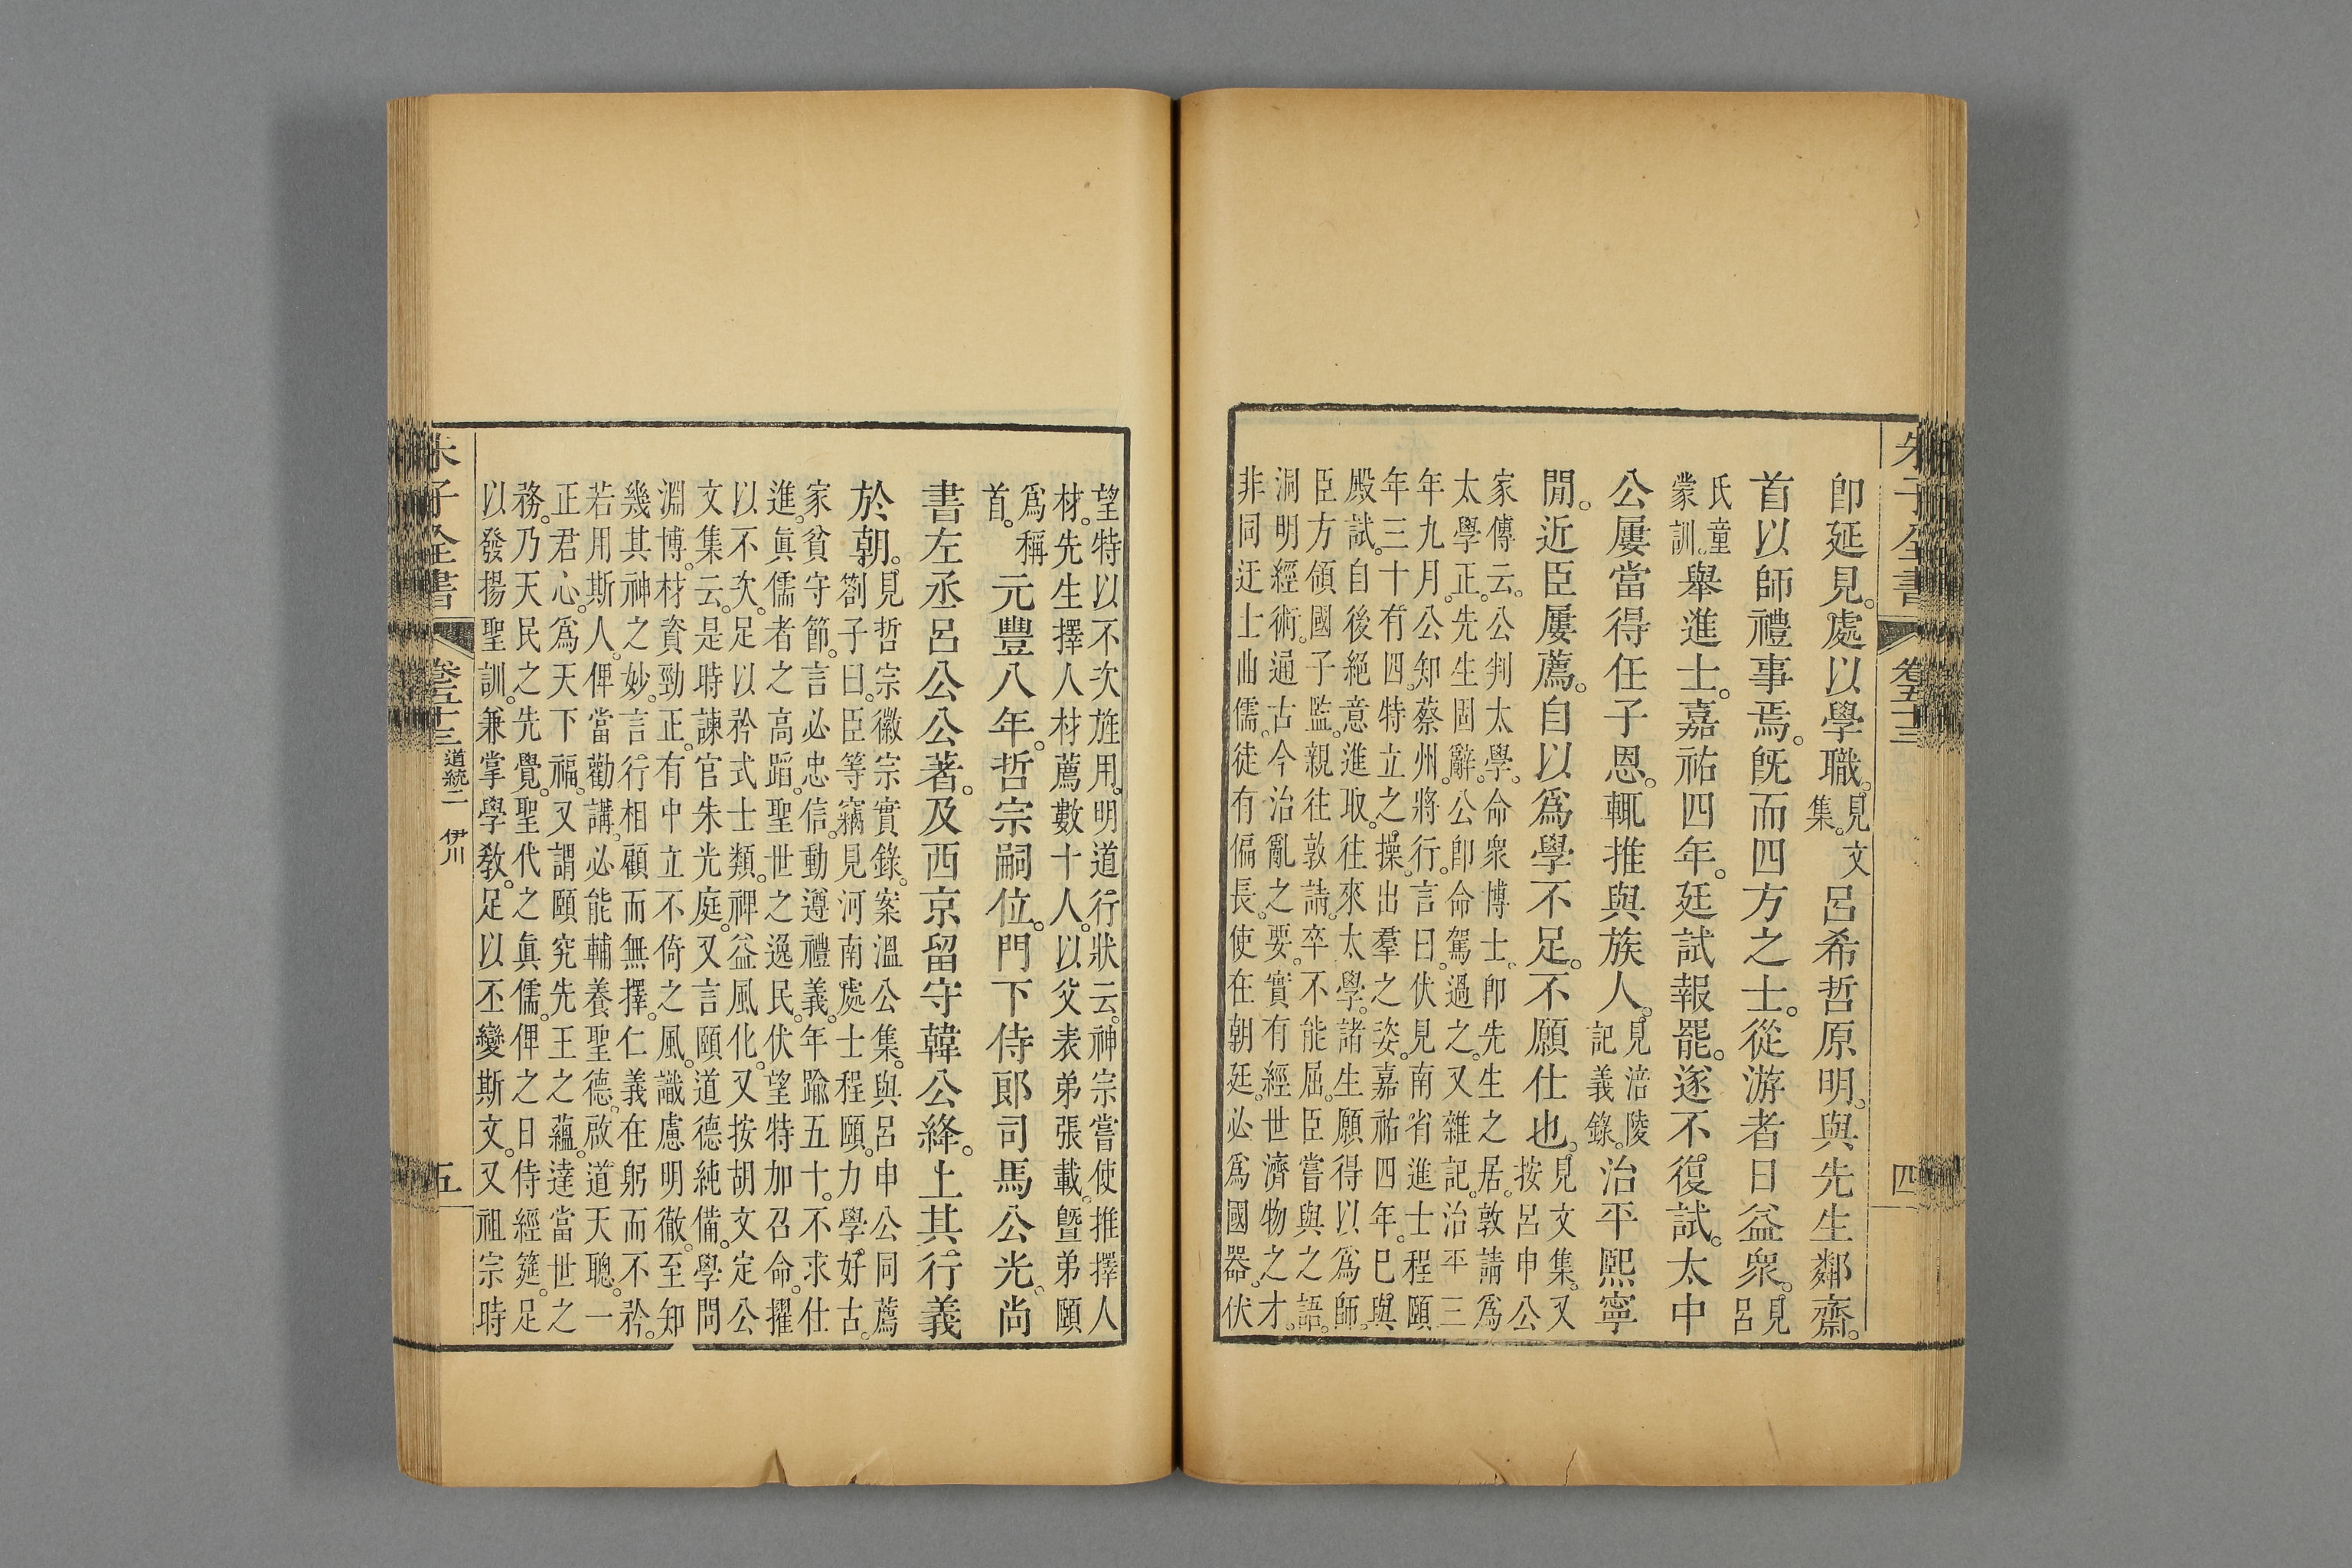 朱子全書 卷五十三 四
卽延見。處以學職。見文集。呂希哲原明。與先生鄰齋。
首以師禮事焉。旣而四方之士。從游者日益衆。見呂
氏童蒙訓。舉進士。嘉祐四年。廷試報罷。遂不復試。太中
公屢當得任子恩。輒推與族人。見涪陵記義錄。治平熙寧
閒。近臣屢薦。自以爲學不足。不願仕也。見文集。又按呂申公
家傳云。公判太學。命衆博士。卽先生之居。敦請爲
太學正。先生固辭。公卽命駕過之。又雜記。治平三
年九月。公知蔡州。將行。言曰。伏見南省進士程頤
年三十有四。特立之操。出羣之姿。嘉祐四年。已與
殿試。自後絕意進取。往來太學。諸生願得以爲師。
臣方領國子監。親往敦請。卒不能屈。臣嘗與之語。
洞明經術。通古今治亂之要。實有經世濟物之才。
非同迂士曲儒。徒有偏長。使在朝廷。必爲國器。伏
望特以不次旌用。明道行狀云。神宗嘗使推擇人
材。先生擇人材薦數十人。以父表弟張載。曁弟頤
爲稱首。元豐八年。哲宗嗣位。門下侍郞司馬公光。尚
書左丞呂公公著。及西京留守韓公絳。上其行義
於朝。見哲宗徽宗實錄。案溫公集。與呂申公同薦
劄子曰。臣等竊見河南處士程頤。力學好古。
家貧守節。言必忠信。動遵禮義。年踰五十。不求仕
進。眞儒者之高蹈。聖世之逸民。伏望特加召命。擢
以不次。足以矜式士類。裨益風化。又按胡文定公
文集云。是時諫官朱光庭。又言頤道德純備。學問
淵博。材資勁正。有中立不倚之風。識慮明徹。至知
幾其神之妙。言行相顧而無擇。仁義在躬而不矜。
若用斯人。俾當勸講。必能輔養聖德。啟道天聰。一
正君心。爲天下福。又謂頤究先王之蘊。達當世之
務。乃天民之先覺。聖代之眞儒。俾之日侍經筵。足
以發揚聖訓。兼掌學敎。足以丕變斯文。又祖宗時
朱子全書 卷五十三 道統二 伊川 五